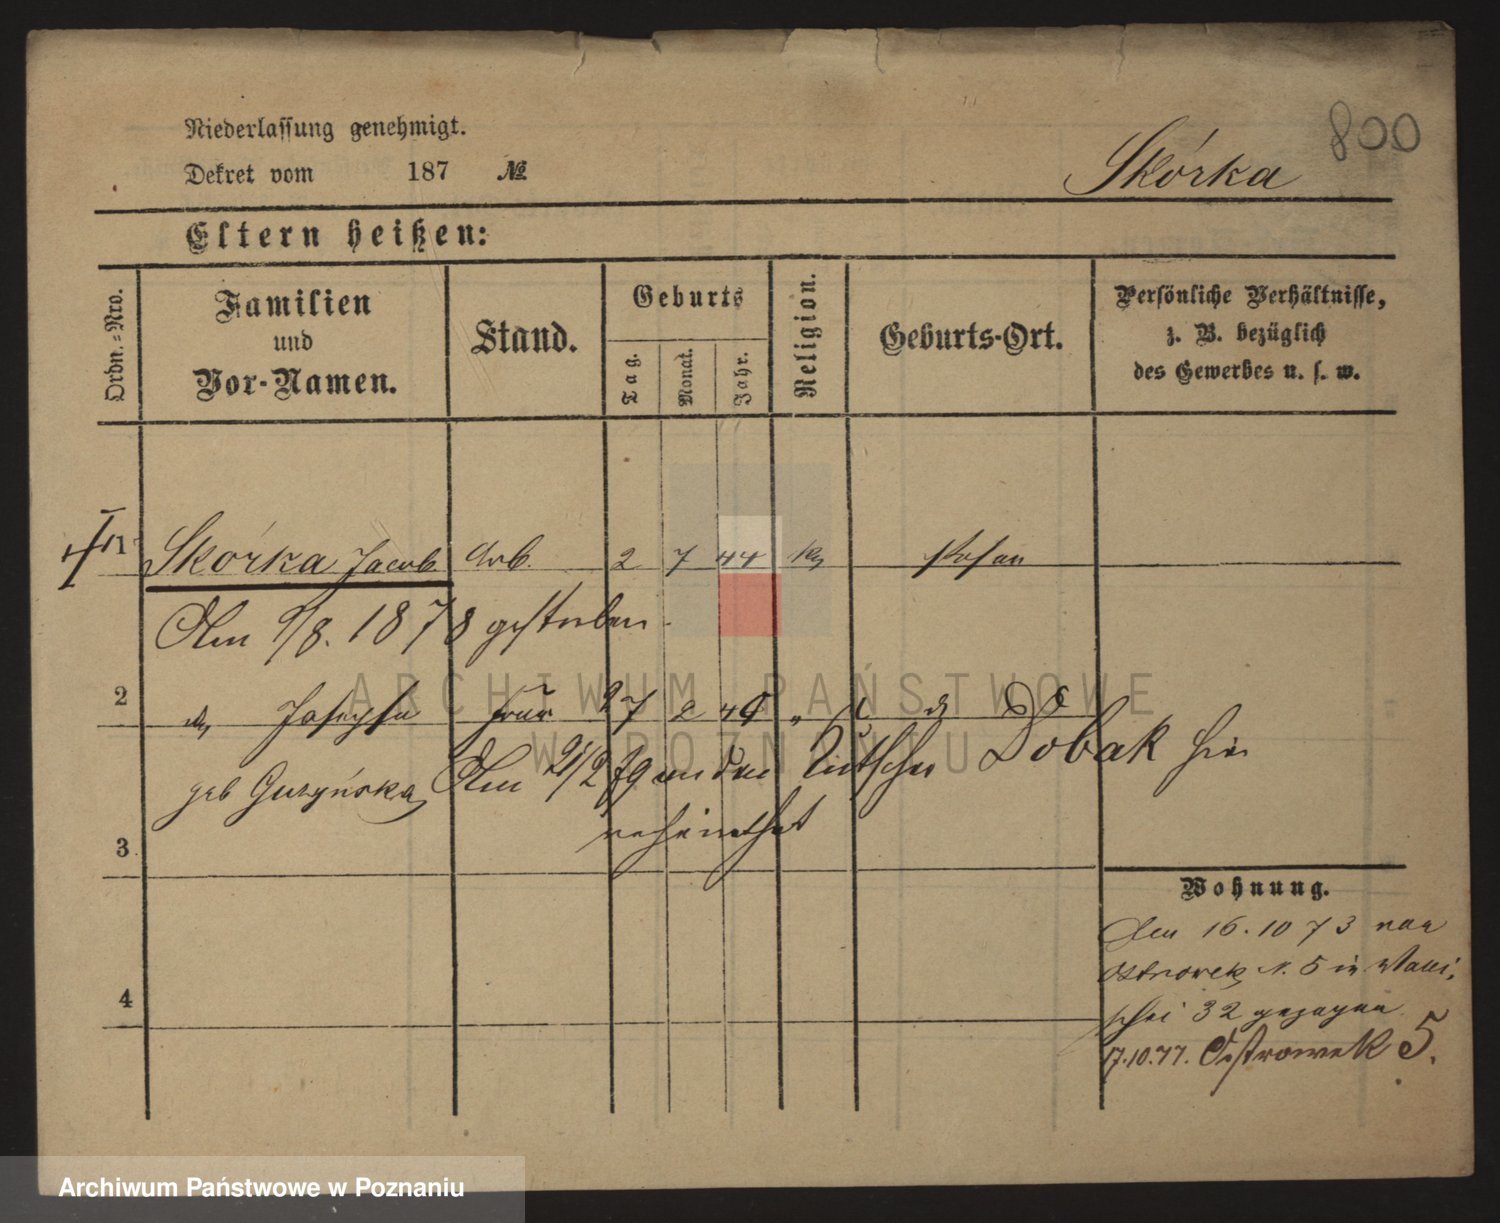 800
Niederlassung genehmigt.
Dekret vom 187 №
Skórka
Eltern heißen:
Ordn.-Nro.
Familien
und
Vor-Namen.
Stand.
Geburts
Tag.
Monat.
Jahr.
Religion.
Geburts-Ort.
Persönliche Verhältnisse,
z. B. bezüglich
des Gewerbes u. s. w.
1 Skórka Jacob Arb. 2 7 44 Posen
Am 9/8. 1878 gestorben
2 Josepha Frau 27 2 "
geb Guzyńska Am 2/2 79 an den Kutscher Dobak hier
verheirathet
3
Wohnung.
Den 16. 10 73 von
Ostrowek N. 5 in Walli,
schei 32 gezogen
17.10.77. Ostrowek 5.
4
ARCHIWUM PAŃSTWOWE
W POZNANIU
Archiwum Państwowe w Poznaniu